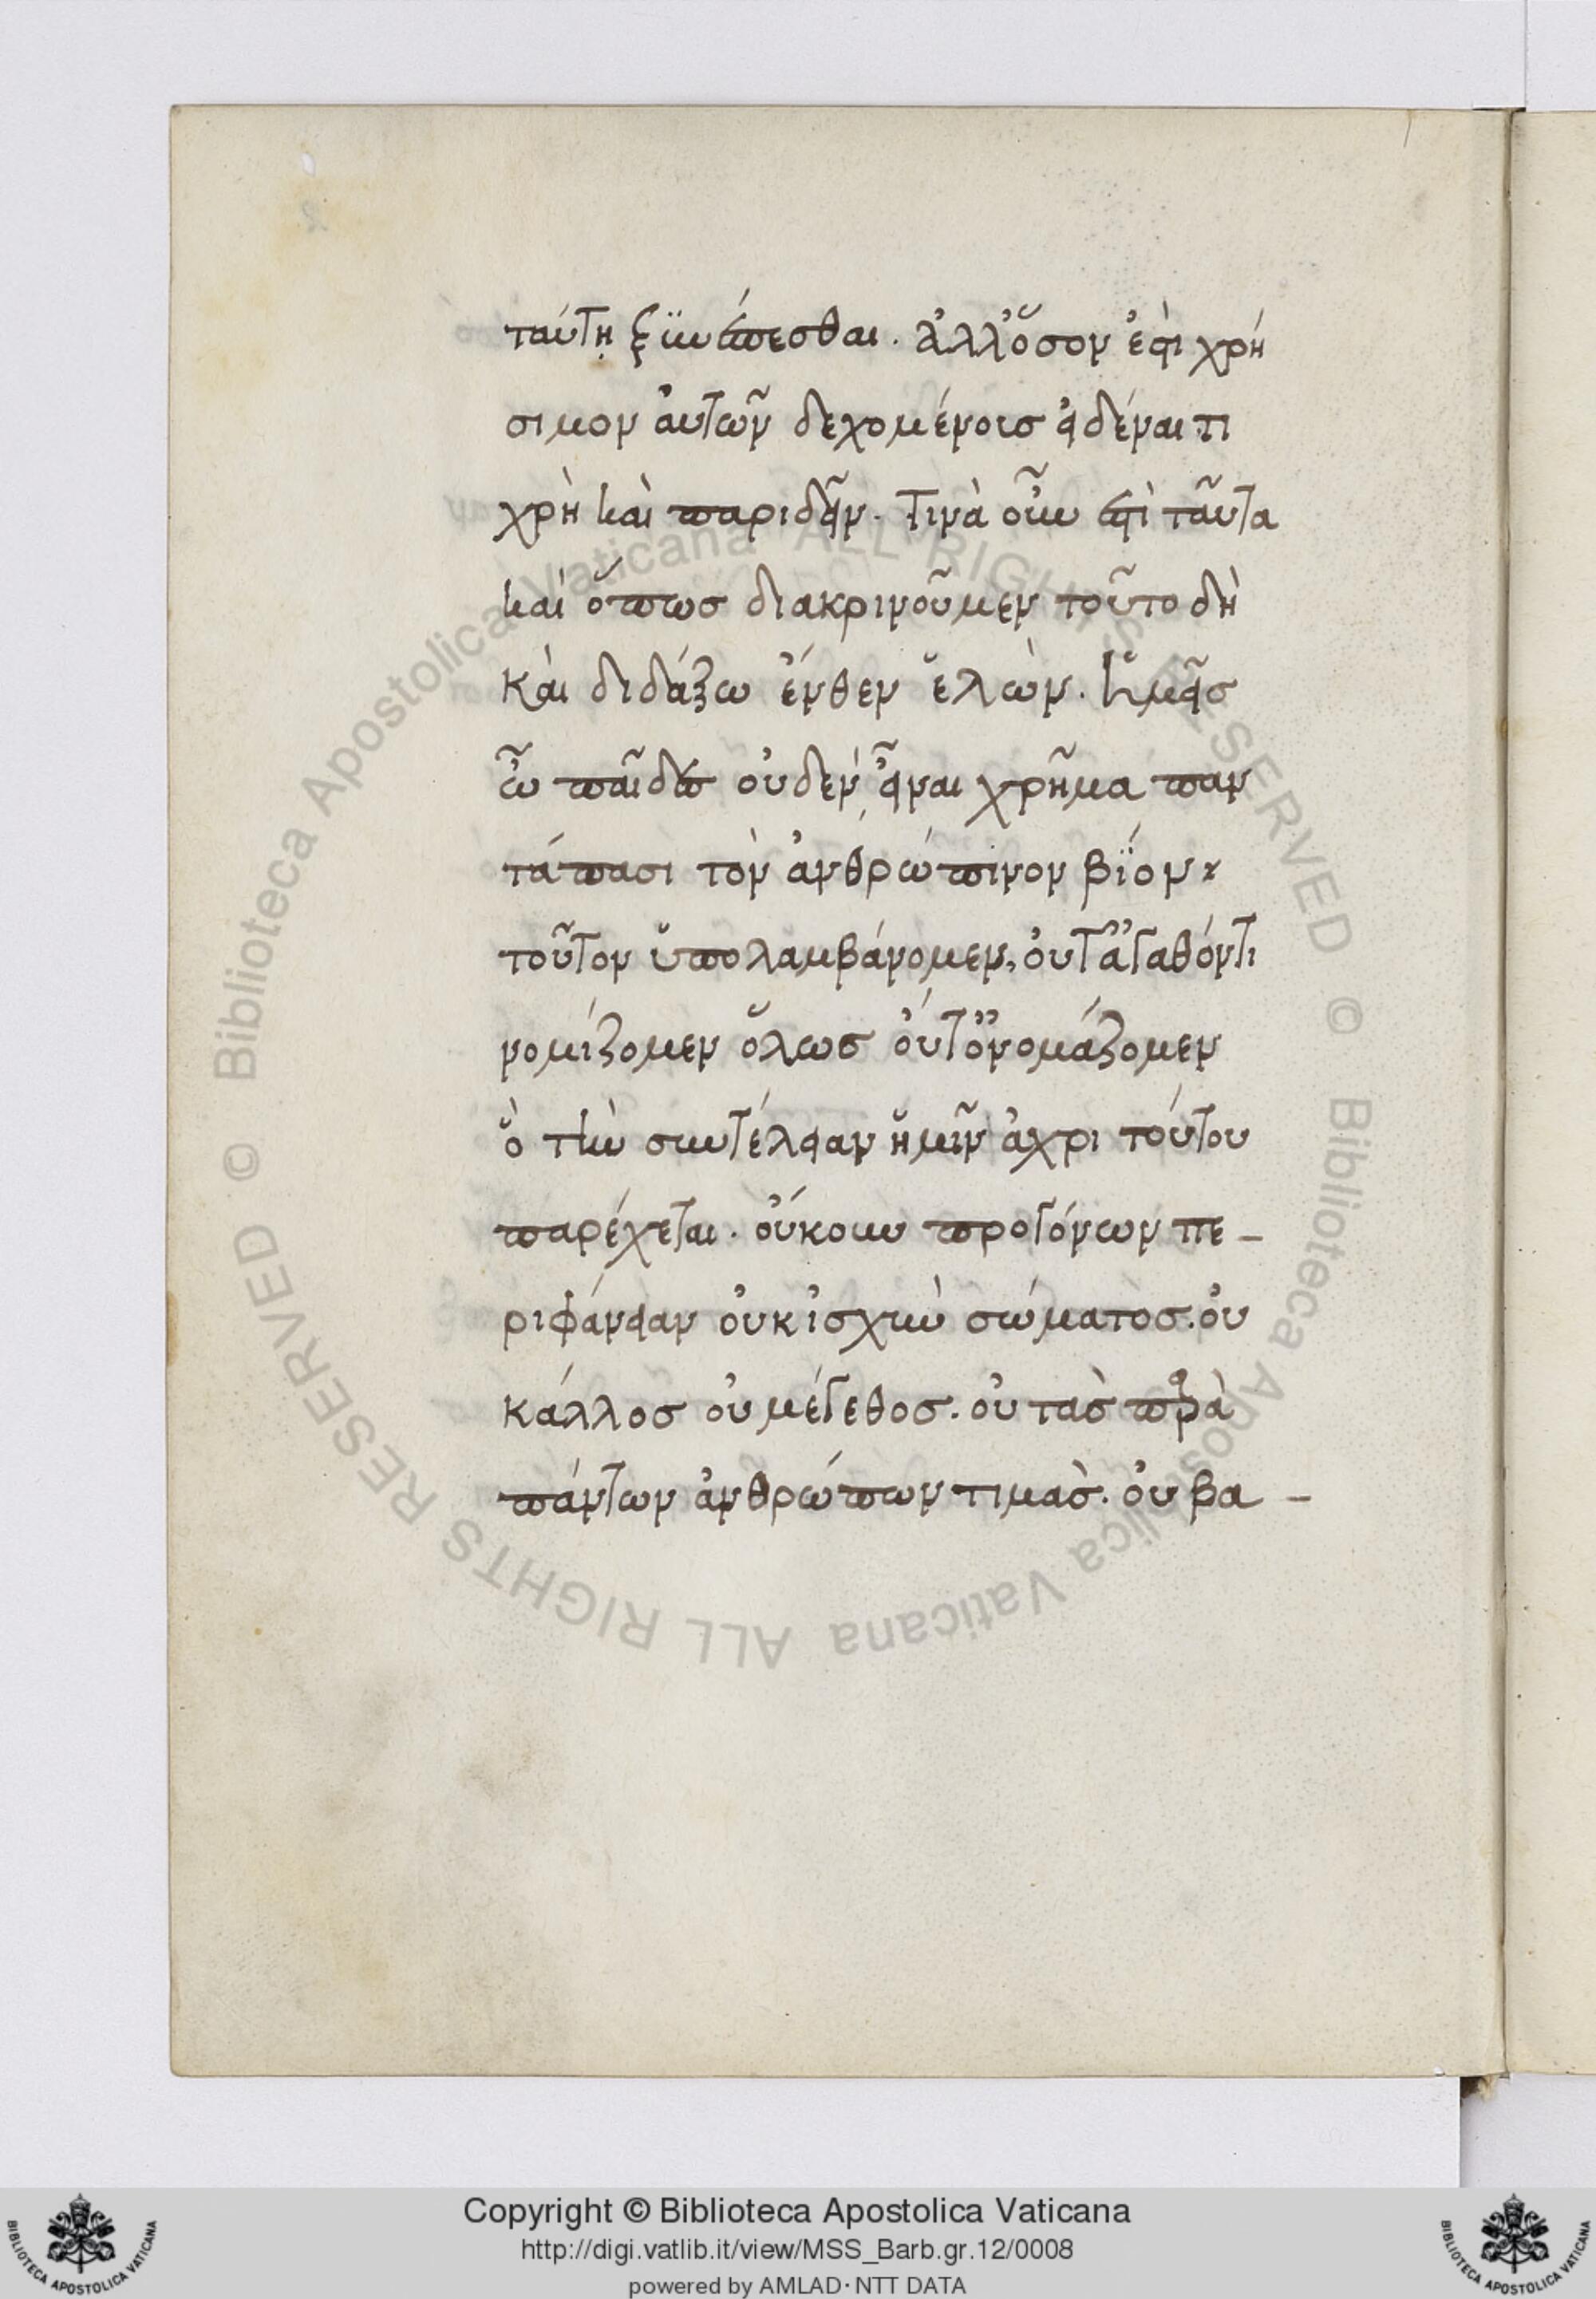 ταύτη ξϋνέπεσθαι. ἀλλ' ὅσον ἐστὶ χρή
σιμον αὐτῶν δεχομένοις εἰδέναι τι
χρὴ καὶ παριδεῖν. τινὰ οὖν ἐστὶ ταῦτα
καὶ ὅπως διακρινοῦμεν τοῦτο δὴ
καὶ διδάξω ἔνθεν ἑλὼν. ἡμεῖς
ὦ παῖδες οὐδὲν εἶναι χρῆμα παν
τάπασι τὸν ἀνθρώπινον βίον
τοῦτον ὑπολαμβάνομεν, οὔτ' ἀγαθόν τι
νομίζομεν ὅλως οὔτ' ὀνομάζομεν
ὃ τὴν συντέλειαν ἡμῖν ἄχρι τούτου
παρέχεται. οὔκουν προγόνων πε-
ριφάνειαν οὐκ ἰσχὺν σώματος. οὐ
κάλλος οὐ μέγεθος. οὐ τὰς παρὰ
πάντων ἀνθρώπων τιμὰς. οὐ βα-
© Biblioteca Apostolica Vaticana ALL RIGHTS RESERVED © Biblioteca Apostolica Vaticana ALL RIGHTS RESERVED
Copyright © Biblioteca Apostolica Vaticana
http://digi.vatlib.it/view/MSS_Barb.gr.12/0008
powered by AMLAD·NTT DATA
BIBLIOTECA APOSTOLICA VATICANA
BIBLIOTECA APOSTOLICA VATICANA